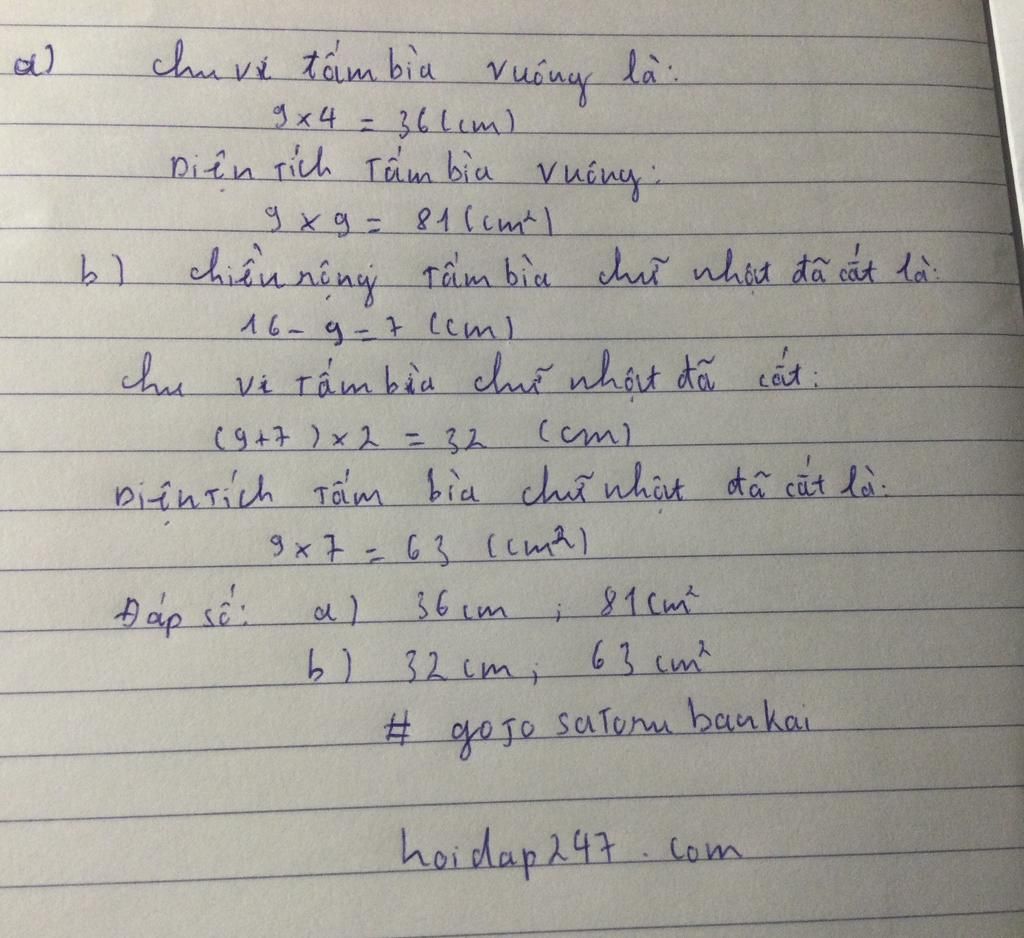 a) Chu vi tấm bìa vuông là:
9 x 4 = 36 (cm)
Diện Tích Tấm bìa vuông:
9 x 9 = 81 (cm²)
b) chiều rộng Tấm bìa chữ nhật đã cắt là:
16 - 9 = 7 (cm)
chu vi Tấm bìa chữ nhật đã cắt:
(9+7) x 2 = 32 (cm)
Diện Tích Tấm bìa chữ nhật đã cắt là:
9 x 7 = 63 (cm²)
Đáp số: a) 36cm ; 81cm²
b) 32cm; 63 cm²
# gojo saToru bankai
hoidap247.com